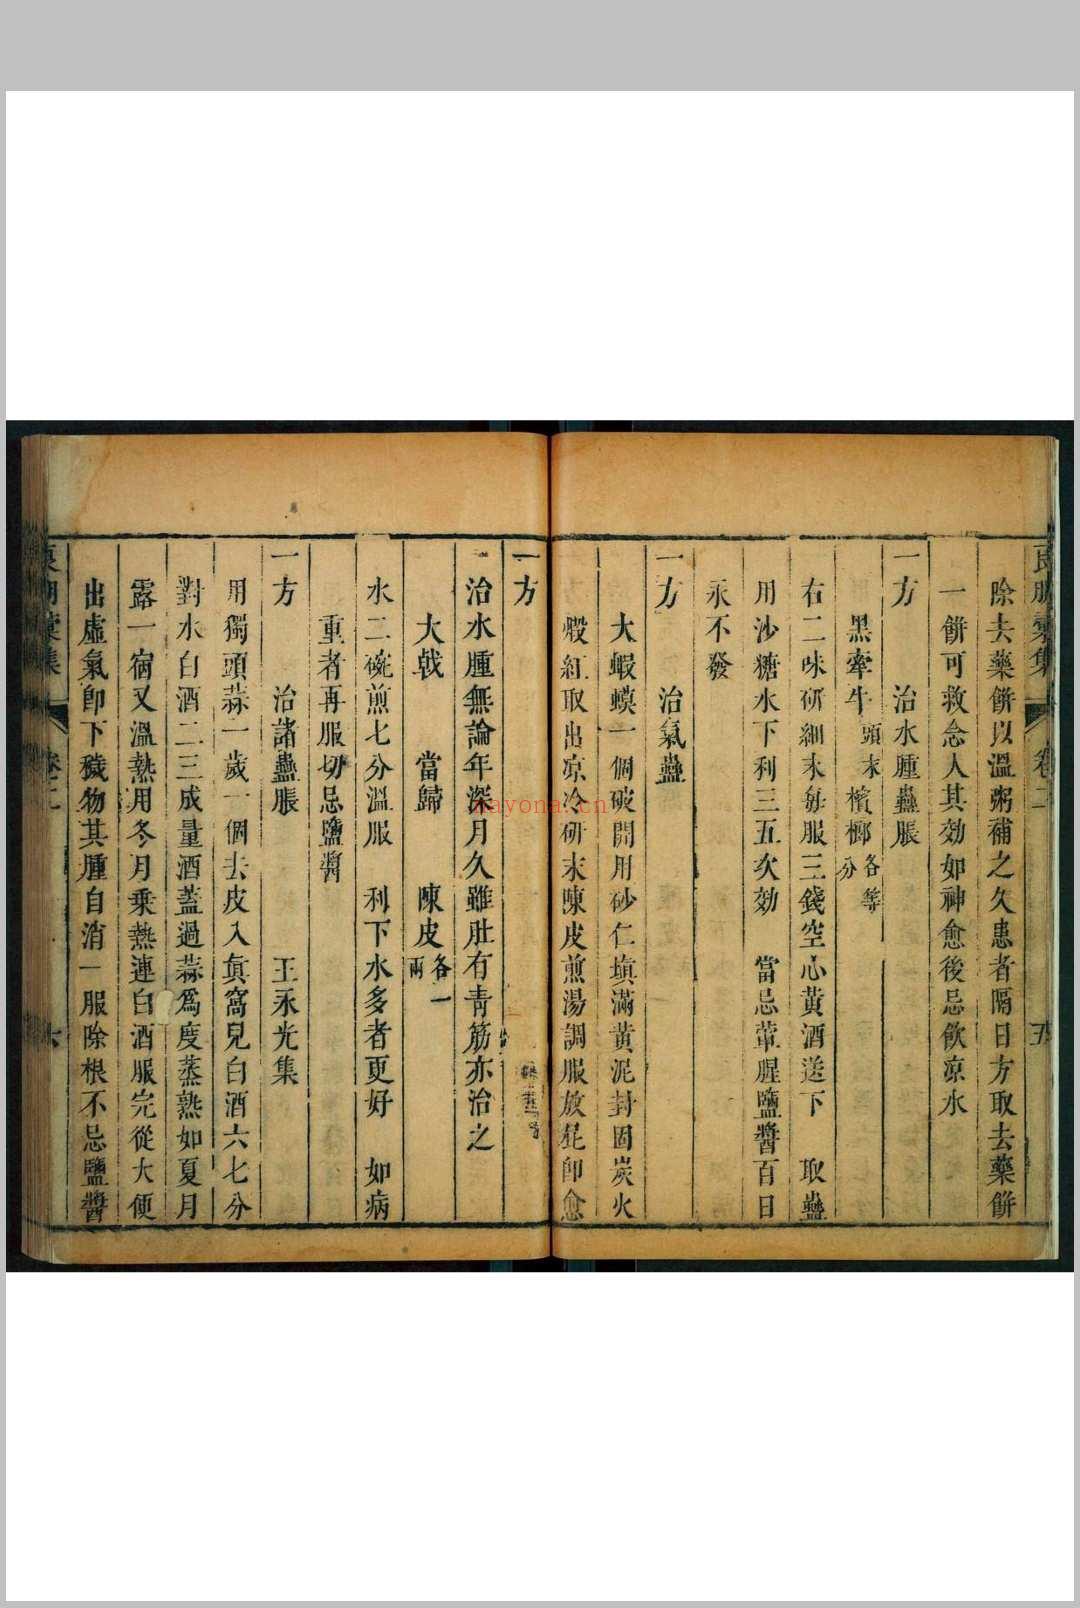 良朋彙集
卷二
五
除去藥餅以溫粥補之久患者隔日方取去藥餅
一餅可救念人其効如神愈後忌飲凉水
一方 治水腫蠱脹
黑牽牛頭末 檳榔各等分
右二味研細末每服三錢空心黃酒送下 取蠱
用沙糖水下利三五次効 當忌葷腥鹽醬百日
永不發
一方 治氣蠱
大蝦蟆一個破開用砂仁塡滿黃泥封固炭火
煅紅取出凉冷研末陳皮煎湯調服放屁卽愈
一方
治水腫無論年深月久雖肚有靑筋亦治之
大戟 當歸 陳皮各一兩
水二碗煎七分溫服 利下水多者更好 如病
重者再服切忌鹽醬
一方 治諸蠱脹 王永光集
用獨頭蒜一歲一個去皮入眞窩兒白酒六七分
對水白酒二三成量酒蓋過蒜爲度蒸熟如夏月
露一宿又溫熱用冬月乗熱連白酒服完從大便
出虛氣卽下穢物其腫自消一服除根不忌鹽醬
卷二
六
nayona.cn